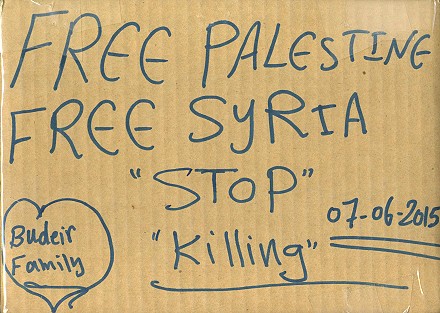 FREE PALESTINE
FREE SYRIA
"STOP"
"Killing"
07-06-2015
Budeir
Family